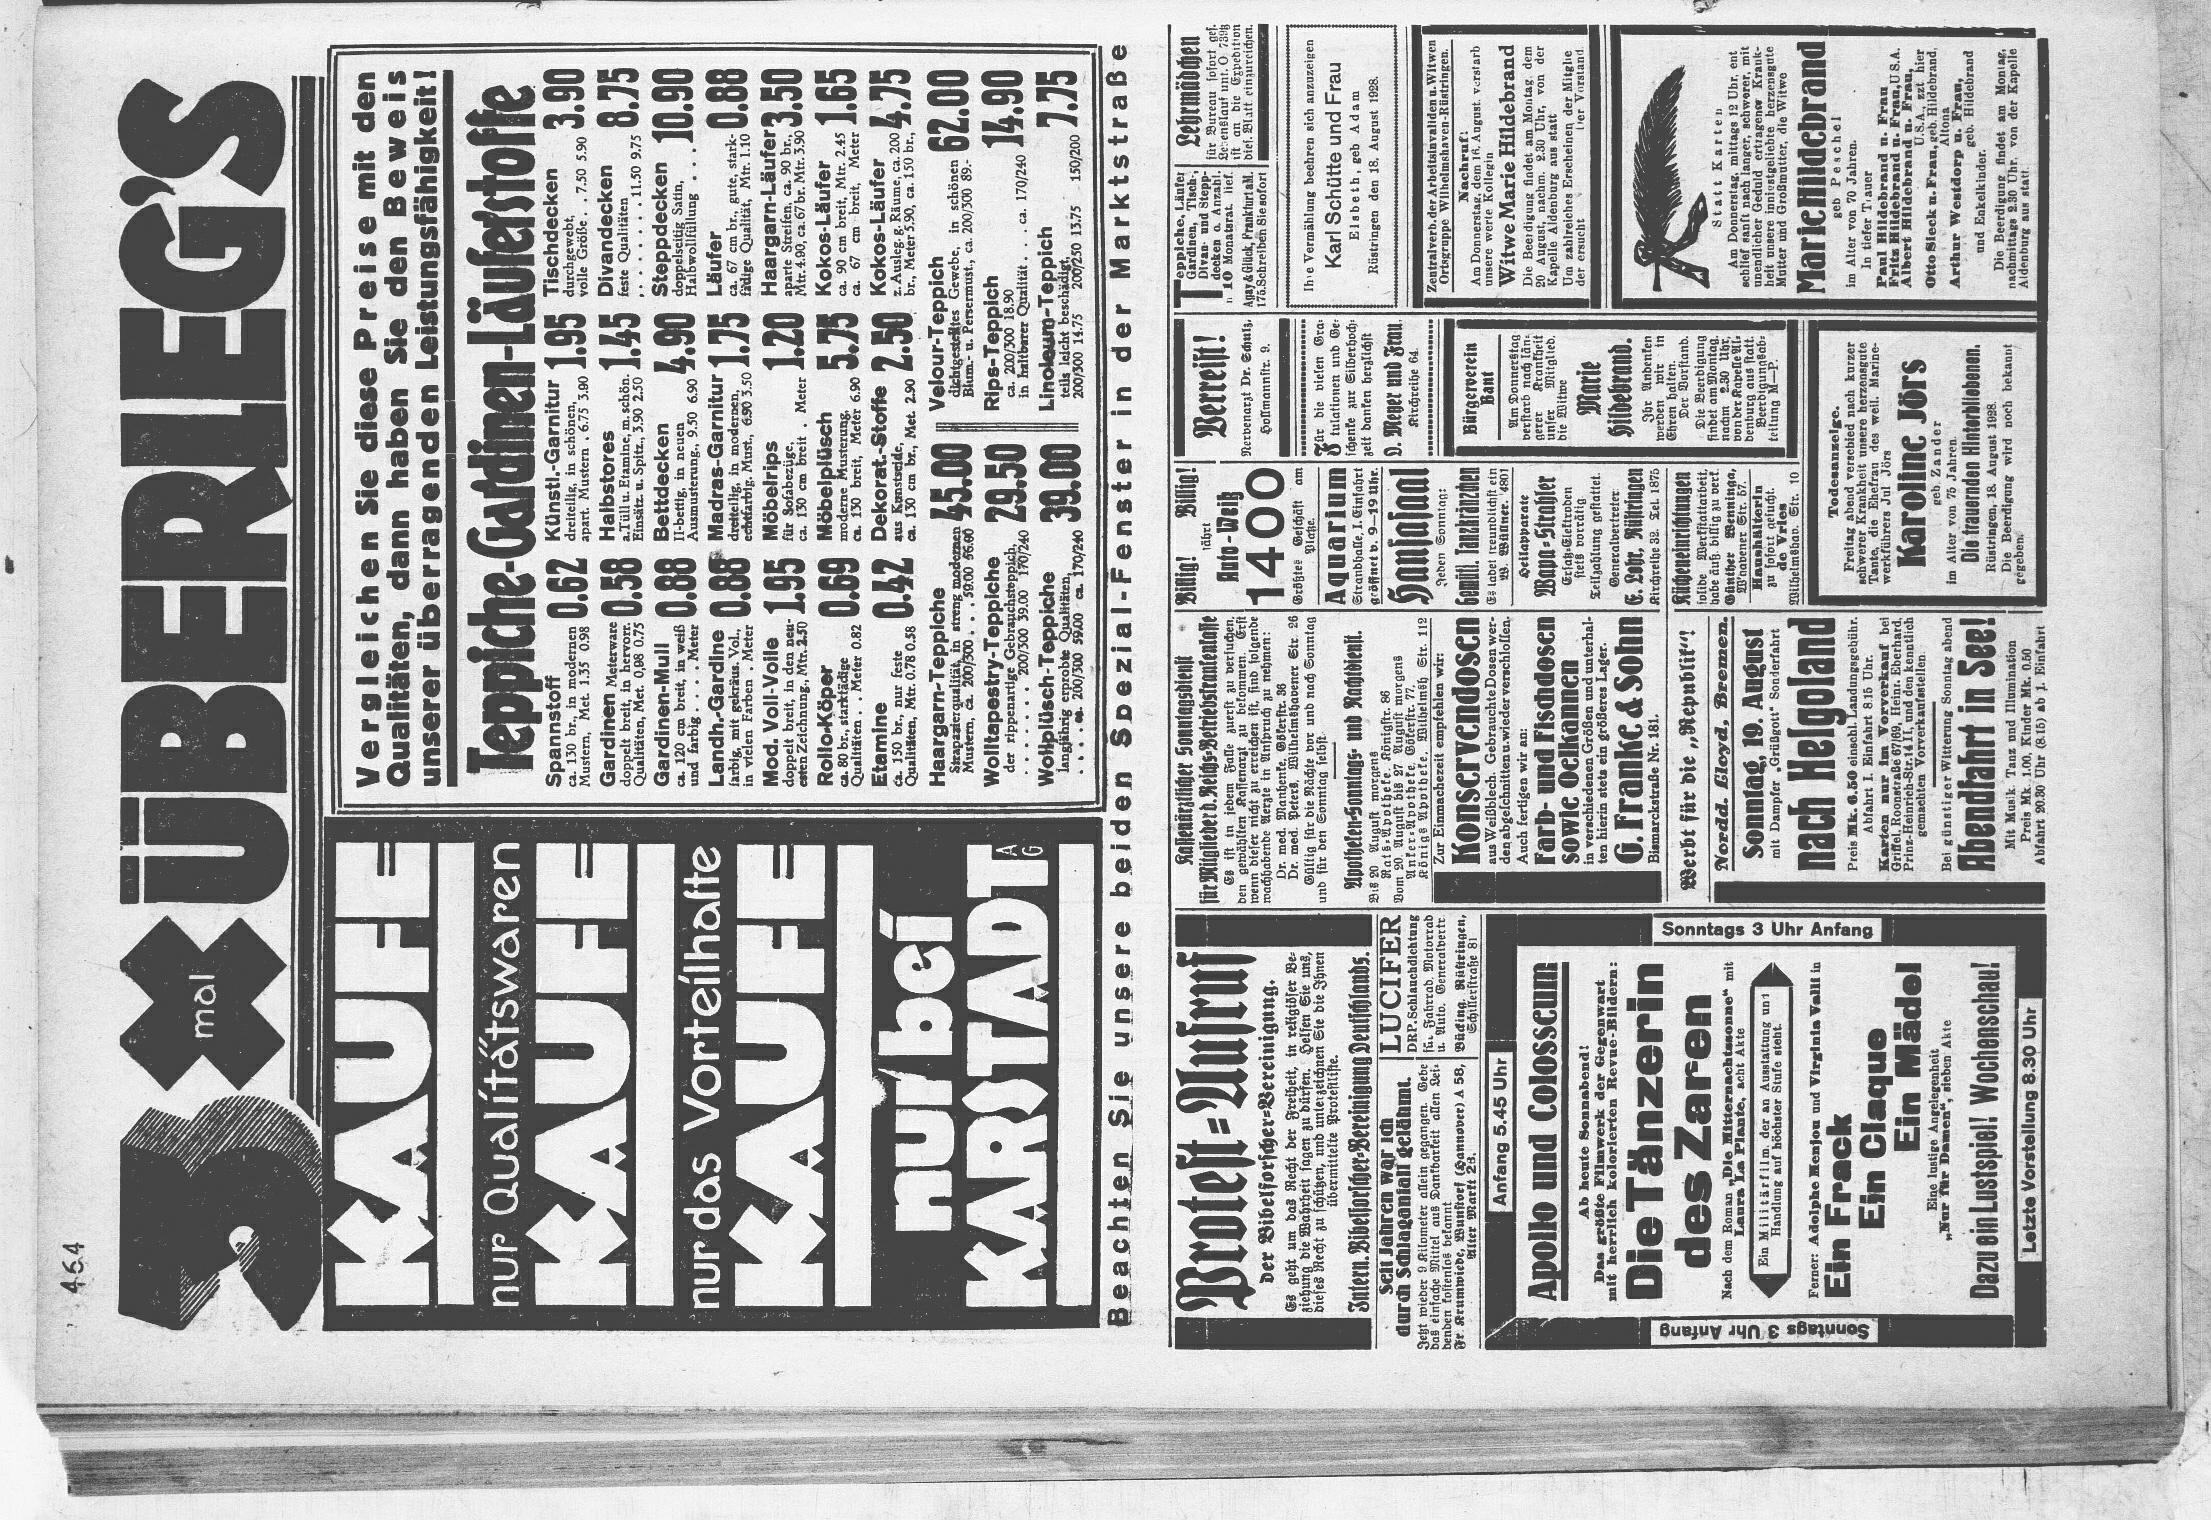 464
3 mal ÜBERLEG'S
KAUFE
nur Qualitätswaren
KAUFE
nur das Vorteilhafte
KAUFE
nur bei
KARSTADT AG
Vergleichen Sie diese Preise mit den
Qualitäten, dann haben Sie den Beweis
unserer überragenden Leistungsfähigkeit!
Teppiche-Gardinen-Läuferstoffe
Spannstoff
ca. 130 br., in modernen
Mustern, Met. 1.35 0.98 0.62
Gardinen Meterware
doppelt breit, in hervorr.
Qualitäten, Met. 0,98 0.75 0.58
Gardinen-Mull
ca. 120 cm breit, in weiß
und farbig . . . . Meter 0.88
Landh.-Gardine
farbig, mit gekräus. Vol.,
in vielen Farben . Meter 0.88
Mod. Voll-Voile
doppelt breit, in den neu-
esten Zeichnung., Mtr. 2.50 1.95
Rollo-Köper
ca. 80 br., starkfädige
Qualitäten . . . Meter 0.82 0.69
Etamine
ca. 150 br., nur feste
Qualitäten, Mtr. 0.78 0.58 0.42
Künstl.-Garnitur
dreiteilig, in schönen,
apart. Mustern . 6.75 3.90 1.95
Halbstores
a. Tüll u. Etamine, m. schön.
Einsätz. u. Spitz., 3.90 2.50 1.45
Bettdecken
II-bettig, in neuen
Ausmusterung. 9.50 6.90 4.90
Madras-Garnitur
dreiteilig, in modernen,
echtfarbig. Must., 6.90 3.50 1.75
Möbelrips
für Sofabezüge,
ca. 130 cm breit . Meter 1.20
Möbelplüsch
moderne Musterung,
ca. 130 breit, Meter 6.90 5.75
Dekorat.-Stoffe
aus Kunstseide,
ca. 130 cm br., Met. 2.90 2.50
Tischdecken
durchgewebt,
volle Größe . . 7.50 5.90 3.90
Divandecken
feste Qualitäten
. . . . . . . 11.50 9.75 8.75
Steppdecken
doppelseitig Satin,
Halbwollfüllung . . . . 10.90
Läufer
ca. 67 cm br., gute, stark-
fädige Qualität, Mtr. 1.10 0.88
Haargarn-Läufer
aparte Streifen, ca. 90 br.,
Mtr. 4.90, ca. 67 br. Mtr. 3.90 3.50
Kokos-Läufer
ca. 90 cm breit, Mtr. 2.45
ca. 67 cm breit, Meter 1.65
Kokos-Läufer
z. Ausleg. g. Räume, ca. 200
br., Meter 5.90, ca. 150 br., 4.75
Haargarn-Teppiche
Strapazierqualität, in streng modernen
Mustern, ca. 200/300 . . . 58.00 56.00 45.00
Wolltapestry-Teppiche
der rippenartige Gebrauchsteppich,
. . . . . . 200/300 39.00 170/240 29.50
Wollplüsch-Teppiche
langjährig erprobte Qualitäten,
. . . . ca. 200/300 59.00 ca. 170/240 39.00
Velour-Teppich
dichtgestelltes Gewebe, in schönen
Blum.- u. Persermust., ca. 200/300 89.- 62.00
Rips-Teppich
ca. 200/300 18.90
in haltbarer Qualität . . . ca. 170/240 14.90
Linoleum-Teppich
teils leicht beschädigt,
200/300 14.75 200/250 13.75 150/200 7.75
Beachten Sie unsere beiden Spezial-Fenster in der Marktstraße
Protest-Aufruf
der Bibelforscher-Vereinigung.
Es geht um das Recht der Freiheit, in religiöser Be-
ziehung die Wahrheit sagen zu dürfen. Helfen Sie uns,
dieses Recht zu schützen, und unterzeichnen Sie die Ihnen
übermittelte Protestliste.
Intern. Bibelforscher-Vereinigung Deutschlands.
Seit Jahren war ich
durch Schlaganfall gelähmt.
Jetzt wieder 9 Kilometer allein gegangen. Gebe
das einfache Mittel aus Dankbarkeit allen Lei-
benden kostenlos bekannt
Fr. Krumwiede, Wunstorf (Hannover) A 58,
Alter Markt 23.
LUCIFER
DRP. Schlauchdichtung
für Fahrrad, Motorrad
u. Auto. Generalvertr
Büding, Rüstringen,
Schillerstraße 81
Sonntags 3 Uhr Anfang
Anfang 5.45 Uhr
Apollo und Colosseum
Ab heute Sonnabend!
Das größte Filmwerk der Gegenwart
mit herrlich kolorierten Revue-Bildern:
Die Tänzerin
des Zaren
Nach dem Roman „Die Mitternachtssonne“ mit
Laura La Plante, acht Akte
Ein Militärfilm, der an Ausstattung und
Handlung auf höchster Stufe steht.
Ferner: Adolphe Menjou und Virginia Valli in
Ein Frack
Ein Claque
Ein Mädel
Eine lustige Angelegenheit
„Nur für Damen“, sieben Akte
Dazu ein Lustspiel! Wochenschau!
Letzte Vorstellung 8.30 Uhr
Sonntags 3 Uhr Anfang
Kassenärztlicher Sonntagsdienst
für Mitglieder d. Reichs-Betriebskrankenkasse
Es ist in jedem Falle zuerst zu versuchen,
den gewählten Kassenarzt zu bekommen. Erst
wenn dieser nicht zu erreichen ist, sind folgende
wachhabende Aerzte in Anspruch zu nehmen:
Dr. med. Manhente, Gökerstr. 36
Dr. med. Peters, Wilhelmshavener Str. 26
Gültig für die Nächte vor und nach Sonntag
und für den Sonntag selbst.
Apotheken-Sonntags- und Nachtdienst.
Bis 20 August morgens
Rats-Apotheke, Königstr. 86
Vom 20. August bis 27 August morgens
Adler-Apotheke, Gökerstr. 77.
Königs Apotheke, Wilhelmsh Str. 112
Zur Einmachezeit empfehlen wir:
Konservendosen
aus Weißblech. Gebrauchte Dosen wer-
den abgeschnitten u. wieder verschlossen.
Auch fertigen wir an:
Farb- und Fischdosen
sowie Oelkannen
in verschiedenen Größen und unterhal-
ten hierin stets ein größeres Lager.
G. Franke & Sohn
Bismarckstraße Nr. 181.
Werbt für die „Republik“!
Nordd. Lloyd, Bremen.
Sonntag, 19. August
mit Dampfer „Grüßgott“ Sonderfahrt
nach Helgoland
Preis Mk. 6.50 einschl. Landungsgebühr.
Abfahrt I. Einfahrt 8.15 Uhr.
Karten nur im Vorverkauf bei
Griffel, Roonstraße 67/69, Heinr. Eberhard,
Prinz-Heinrich-Str. 14 II, und den kenntlich
gemachten Vorverkaufsstellen.
Bei günstiger Witterung Sonntag abend
Abendfahrt in See!
Mit Musik. Tanz und Illumination
Preis Mk. 1.00, Kinder Mk. 0.50
Abfahrt 20.30 Uhr (8.15) ab I. Einfahrt
Billig! Billig!
fährt
Auto-Weiß
1400
Größtes Geschäft am
Platze.
Aquarium
Strandhalle, I. Einfahrt
geöffnet v. 9–19 Uhr.
Hansasaal
Jeden Sonntag:
Gemütl. Tanzkränzchen
Es ladet freundlichst ein
W. Wüllner. 4801
Heilapparate
Wapa-Strahler
Ersatz-Elektroden
stets vorrätig
Teilzahlung gestattet.
Generalvertreter
E. Lehr, Rüstringen
Kirchreihe 32. Tel. 1875
Kücheneinrichtungen
solide Werkstattarbeit,
habe äuß. billig zu verk.
Günther Wenninga,
Haushälterin
zu sofort gesucht.
de Vries
Wilhelmshav. Str. 10
Verreist!
Nervenarzt Dr. Schulz,
Hoffmannstr. 9.
Für die vielen Gra-
tulationen und Ge-
schenke zur Silberhoch-
zeit danken herzlichst
D. Meyer und Frau.
Kirchreihe 64.
Bürgerverein
Bant
Am Donnerstag
verstarb nach län-
gerer Krankheit
unser Mitglied.
die Witwe
Marie
Hildebrand.
Ihr Andenken
werden wir in
Ehren halten.
Der Vorstand.
Die Beerdigung
findet am Montag,
nachm 2.30 Uhr,
von der Kapelle Al-
denburg aus statt.
Beerdigungsab-
teilung M–P.
Todesanzeige.
Freitag abend verschied nach kurzer
schwerer Krankheit unsere herzensgute
Tante, die Ehefrau des weil. Marine-
werkführers Jul Jörs
Karoline Jörs
geb. Zander
im Alter von 75 Jahren.
Die trauernden Hinterbliebenen.
Rüstringen, 18. August 1928.
Die Beerdigung wird noch bekannt
gegeben.
Teppiche, Läufer
Gardinen, Tisch-,
Divan- und Stepp-
decken o. Anzahl.
in 10 Monatsrat. lief.
Agay & Glück, Frankfurt a M.
175. Schreiben Sie sofort
Lehrmädchen
für Bureau sofort ges.
Lebenslauf unt. O. 7396
ist an die Expedition
dies. Blatt einzureichen.
Ihre Vermählung beehren sich anzuzeigen
Karl Schütte und Frau
Elsbeth, geb Adam
Rüstringen den 18. August 1928.
Zentralverb. der Arbeitsinvaliden u. Witwen
Ortsgruppe Wilhelmshaven-Rüstringen.
Nachruf!
Am Donnerstag, dem 16 August. verstarb
unsere werte Kollegin
Witwe Marie Hildebrand
Die Beerdigung findet am Montag, dem
20 August, nachm. 2.30 Uhr, von der
Kapelle Aldenburg aus statt
Um zahlreiches Erscheinen der Mitglie
der ersucht Der Vorstand
Statt Karten
Am Donnerstag, mittags 12 Uhr, ent
schlief sanft nach langer, schwerer, mit
unendlicher Geduld ertragener Krank-
heit unsere innigstgeliebte herzensgute
Mutter und Großmutter, die Witwe
Marie Hildebrand
geb Peschel
im Alter von 70 Jahren.
In tiefer Trauer
Paul Hildebrand u. Frau
Fritz Hildebrand u. Frau, U.S.A.
Albert Hildebrand u. Frau,
U.S.A., zzt hier
Otto Sieck u. Frau, geb. Hildebrand,
Altona
Arthur Westdorp u. Frau,
geb. Hildebrand
und Enkelkinder.
Die Beerdigung findet am Montag,
nachmittags 2.30 Uhr, von der Kapelle
Aldenburg aus statt.